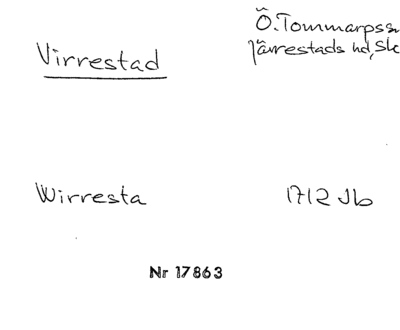 Virrestad
Ö. Tommarps sn
Järrestads hd, Sk
Wirresta 1712 Jb
Nr 17863